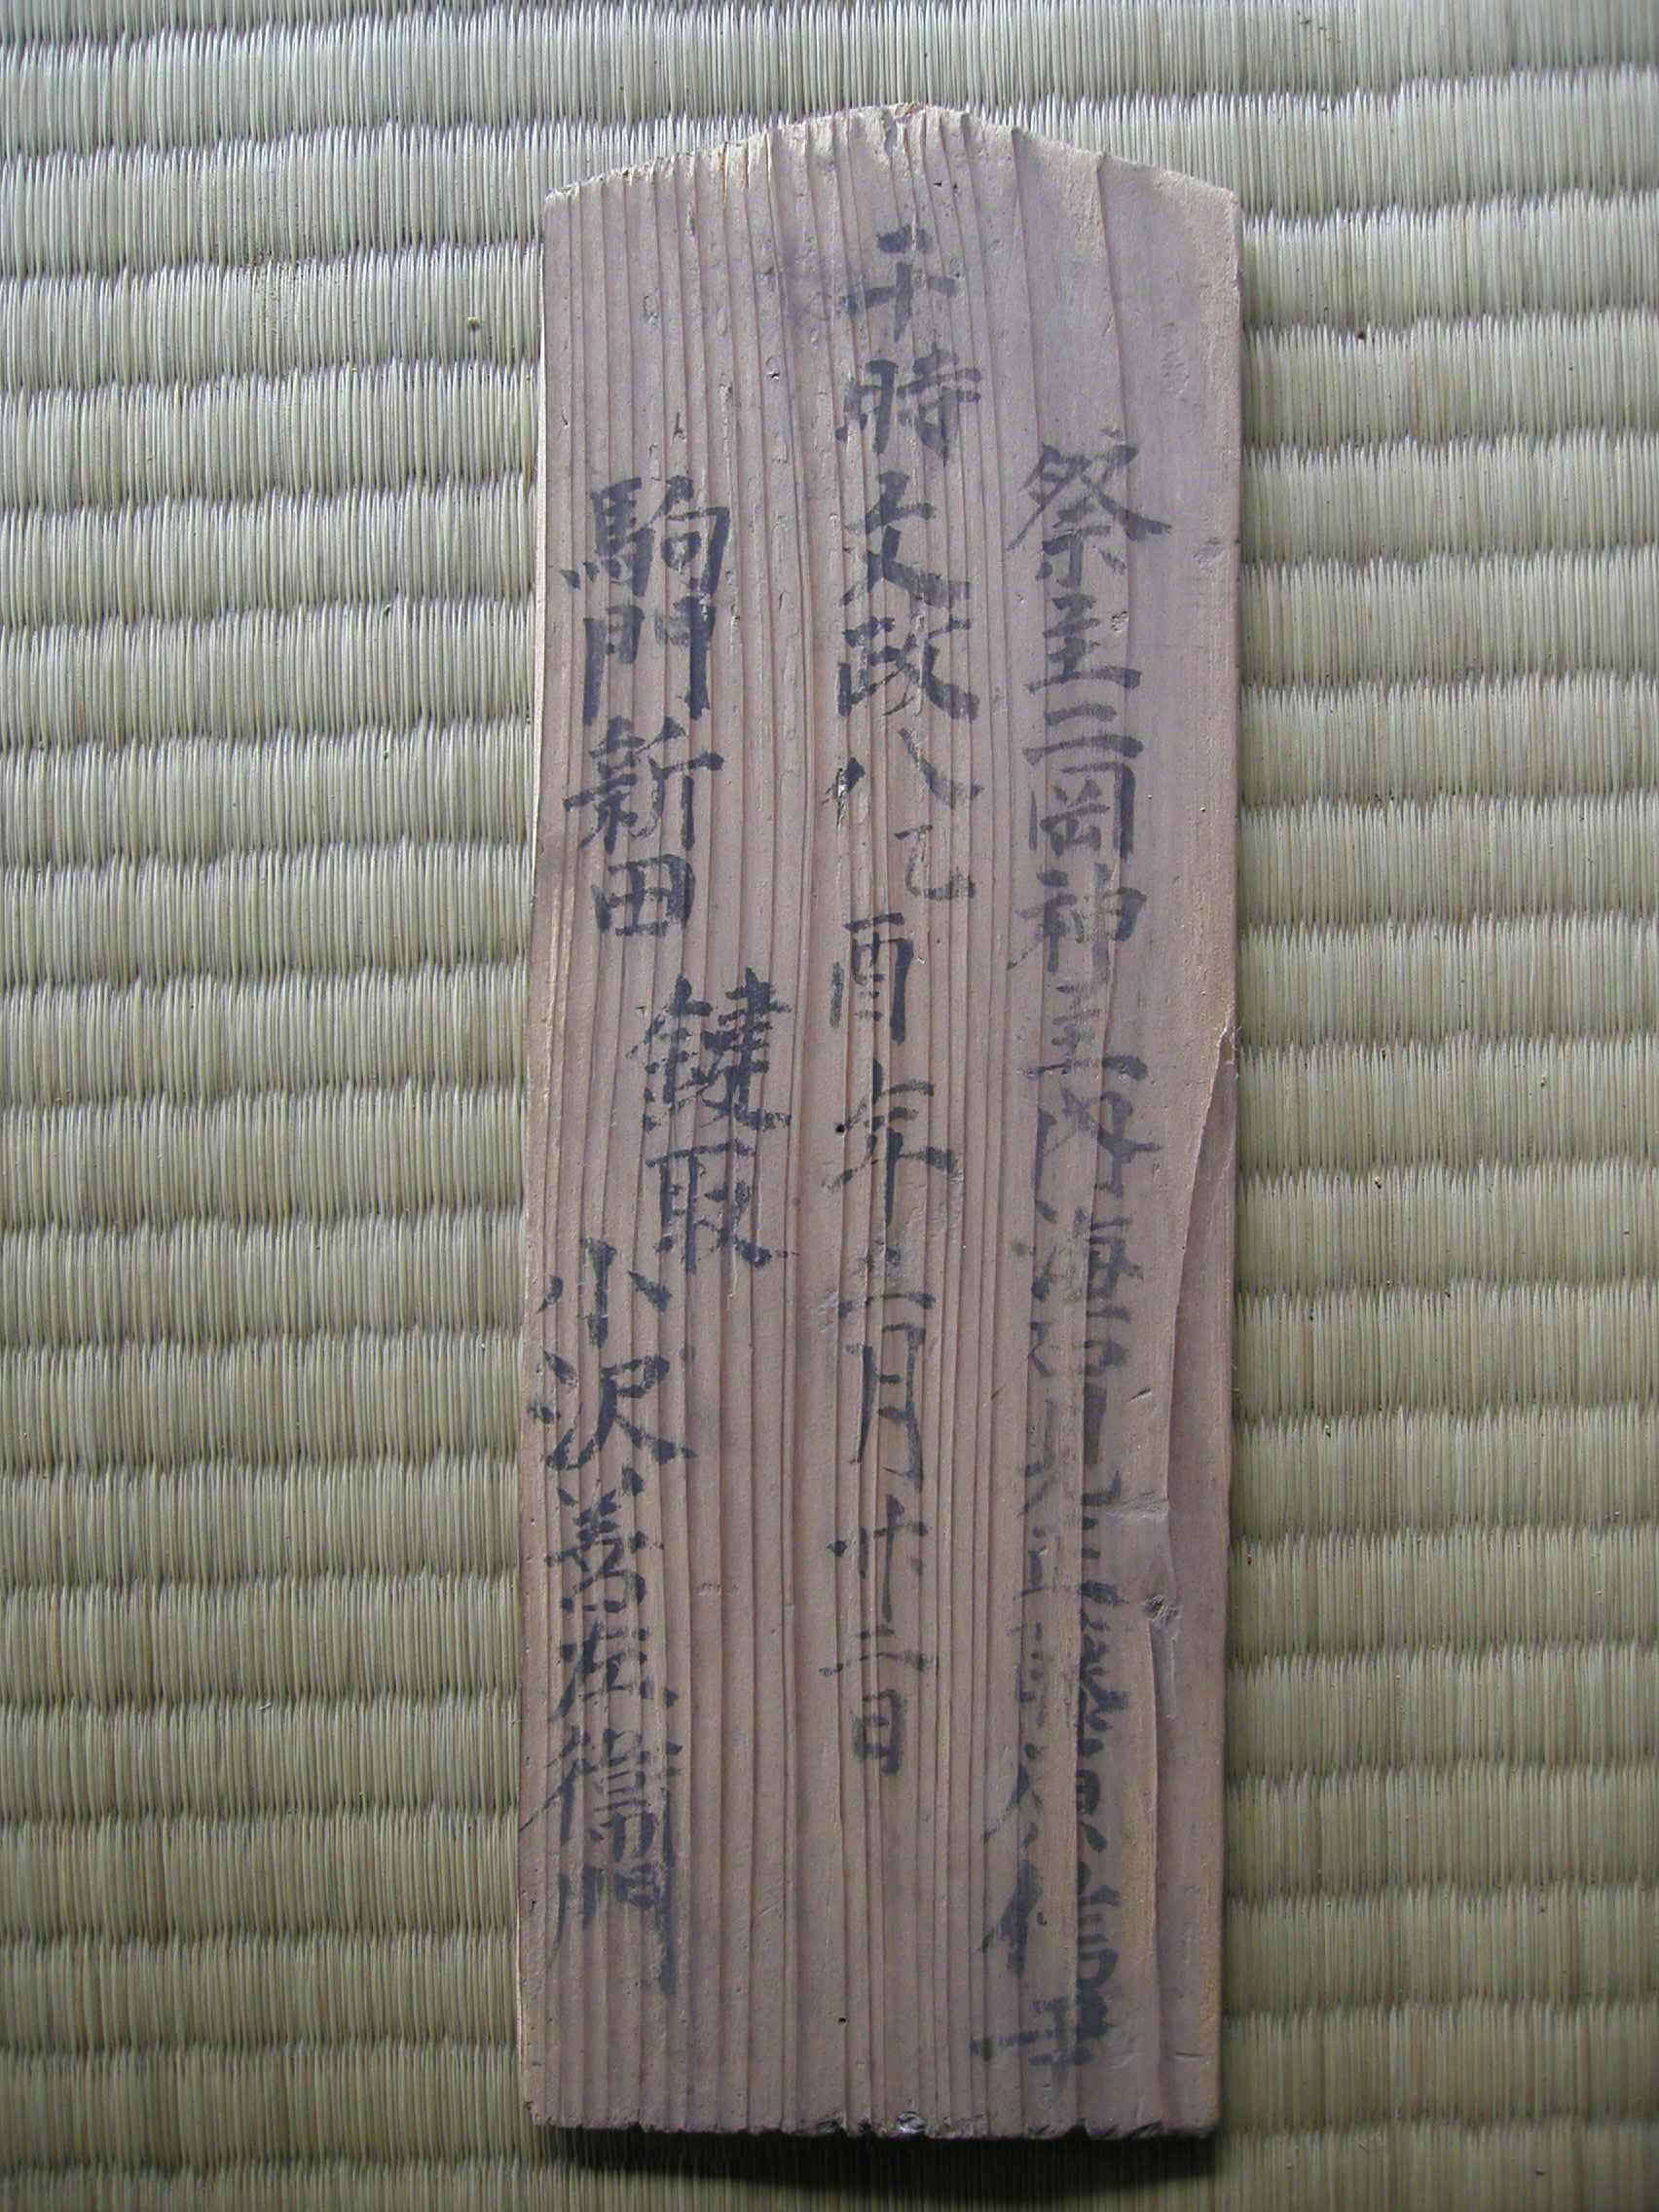 祭主二岡神主内海
藤原信
于時文政八乙酉年二月廿二日
駒門新田
鍵取
小沢善左衛門